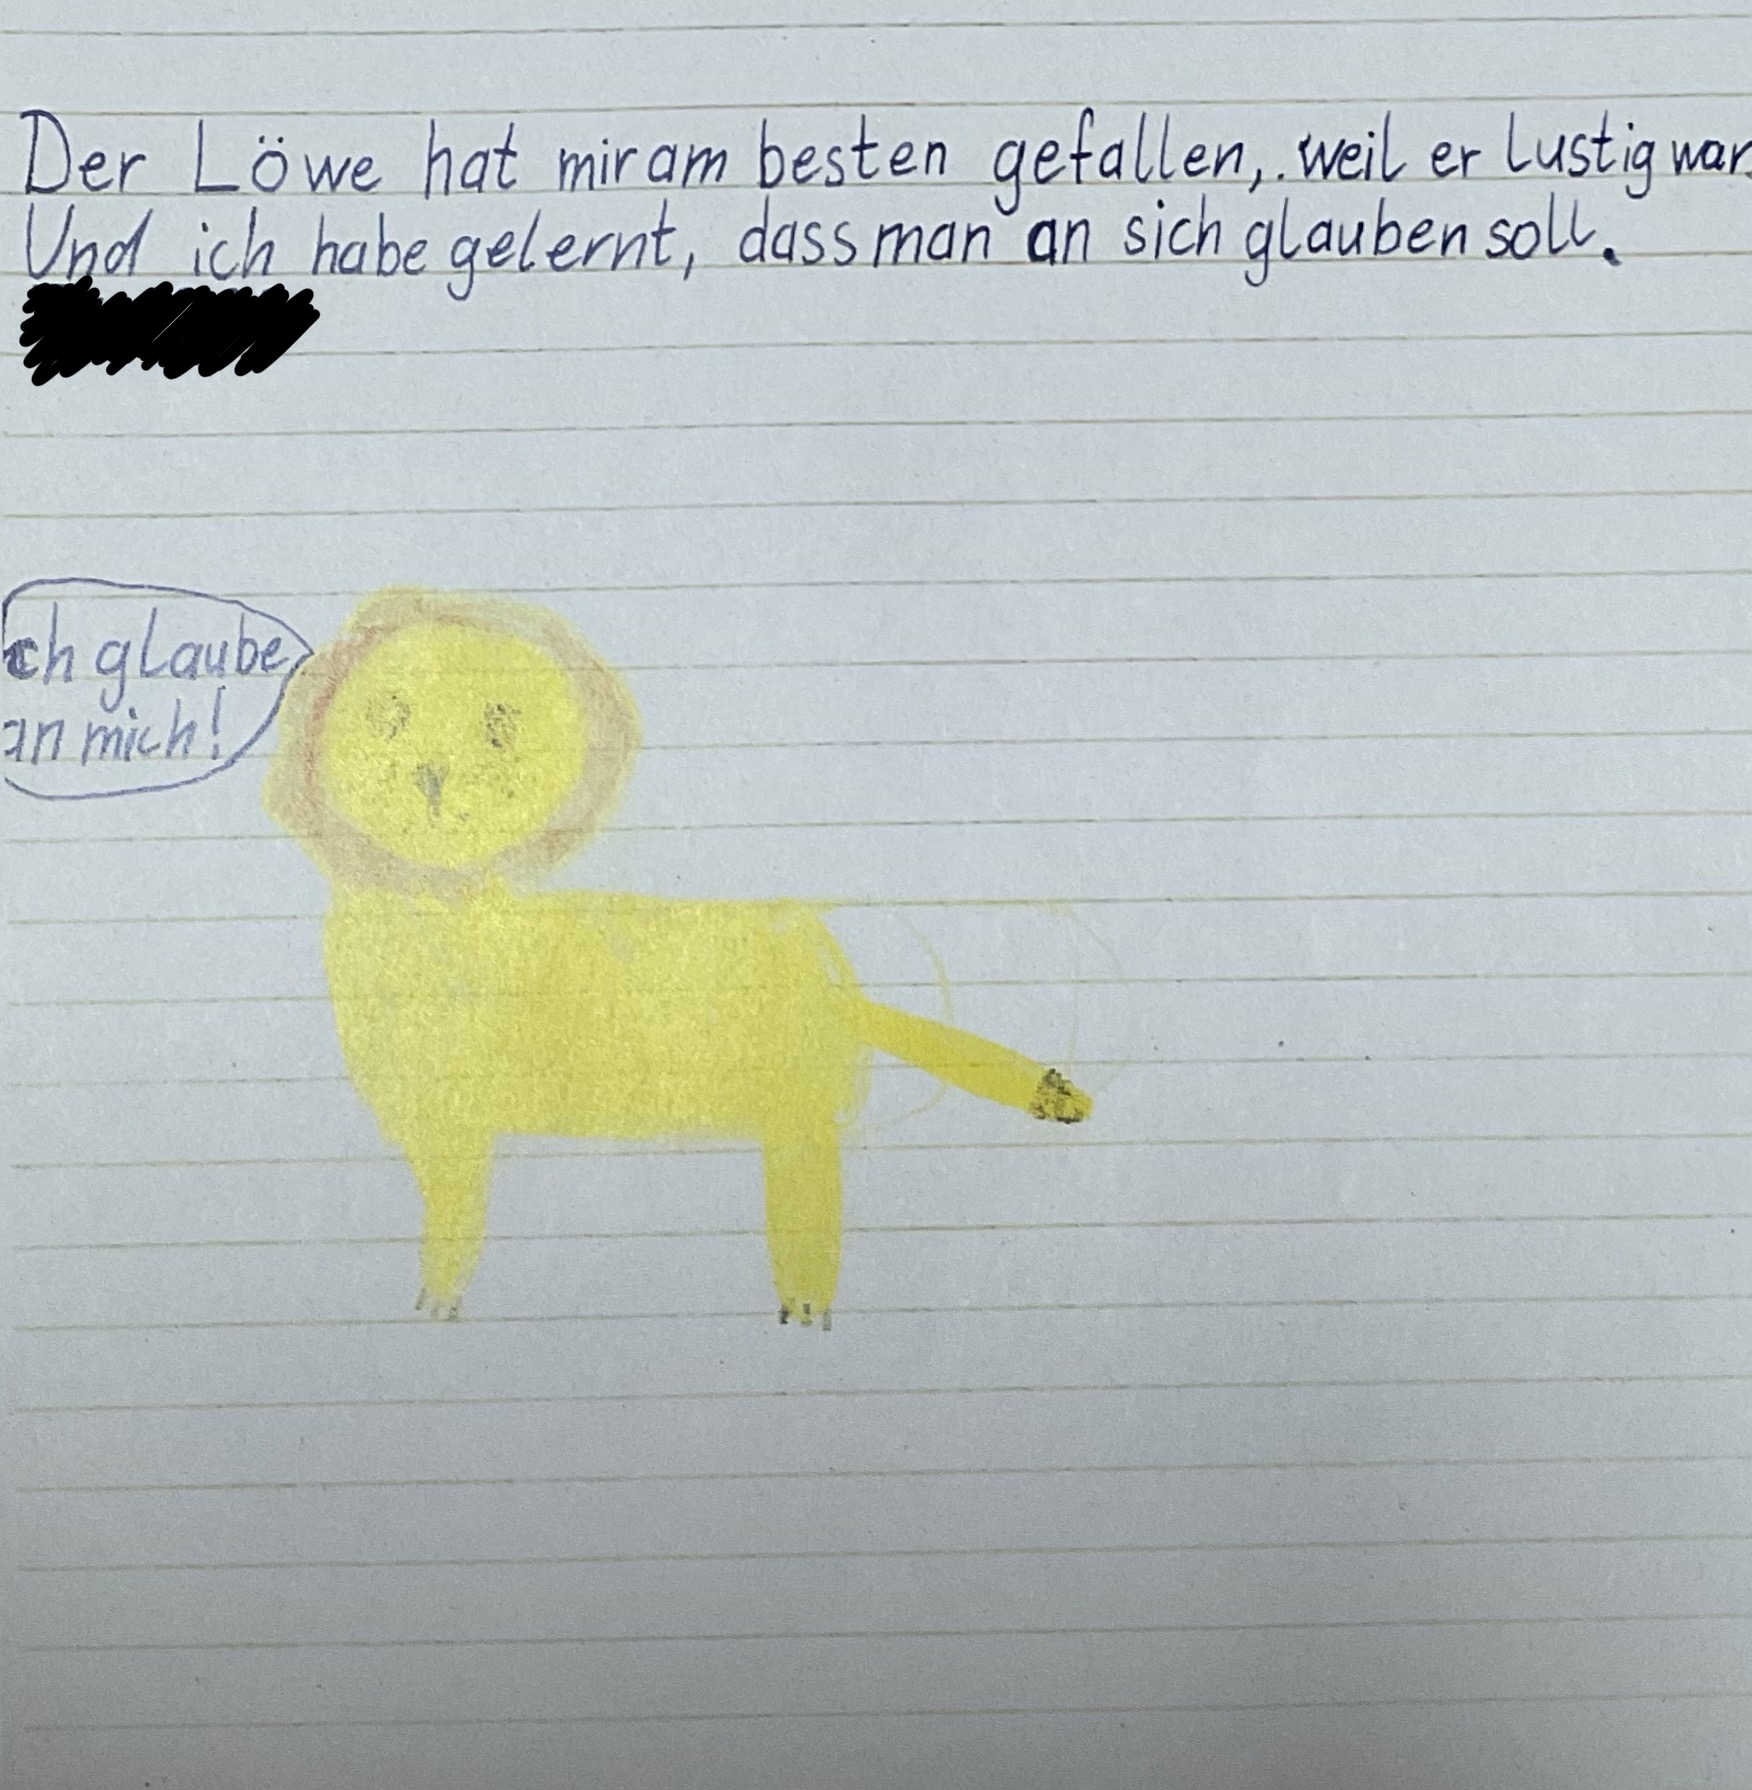 Der Löwe hat mir am besten gefallen, weil er lustig war.
Und ich habe gelernt, dass man an sich glauben soll.
ch glaube
an mich!